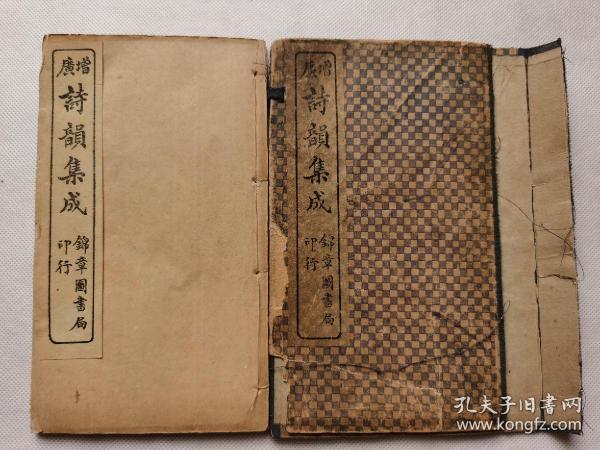 增廣
詩韻集成
錦章圖書局
印行
增廣
詩韻集成
錦章圖書局
印行
孔夫子旧书网
www.kongfz.com